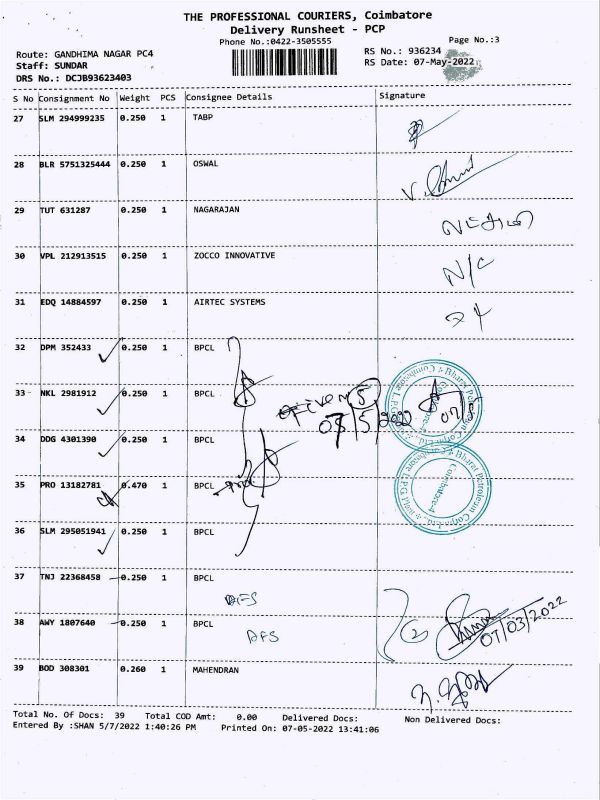 THE PROFESSIONAL COURIERS, Coimbatore
Delivery Runsheet - PCP
Phone No.:0422-3505555
Page No.:3
Route: GANDHIMA NAGAR PC4
RS No.: 936234
Staff: SUNDAR
RS Date: 07-May-2022
DRS No.: DCJB93623403
S No Consignment No Weight PCS Consignee Details Signature
27 SLM 294999235 0.250 1 TABP
28 BLR 5751325444 0.250 1 OSWAL
29 TUT 631287 0.250 1 NAGARAJAN
30 VPL 212913515 0.250 1 ZOCCO INNOVATIVE N/C
31 EDQ 14884597 0.250 1 AIRTEC SYSTEMS
32 DPM 352433 0.250 1 BPCL
33 NKL 2981912 0.250 1 BPCL
5
07/5/2022
34 DDG 4301390 0.250 1 BPCL
35 PRO 13182781 0.470 1 BPCL
36 SLM 295051941 0.250 1 BPCL
37 TNJ 22368458 0.250 1 BPCL
AFS
38 AWY 1807640 0.250 1 BPCL
AFS
07/03/2022
39 BOD 308301 0.260 1 MAHENDRAN
Total No. Of Docs: 39 Total COD Amt: 0.00 Delivered Docs: Non Delivered Docs:
Entered By :SHAN 5/7/2022 1:40:26 PM Printed On: 07-05-2022 13:41:06